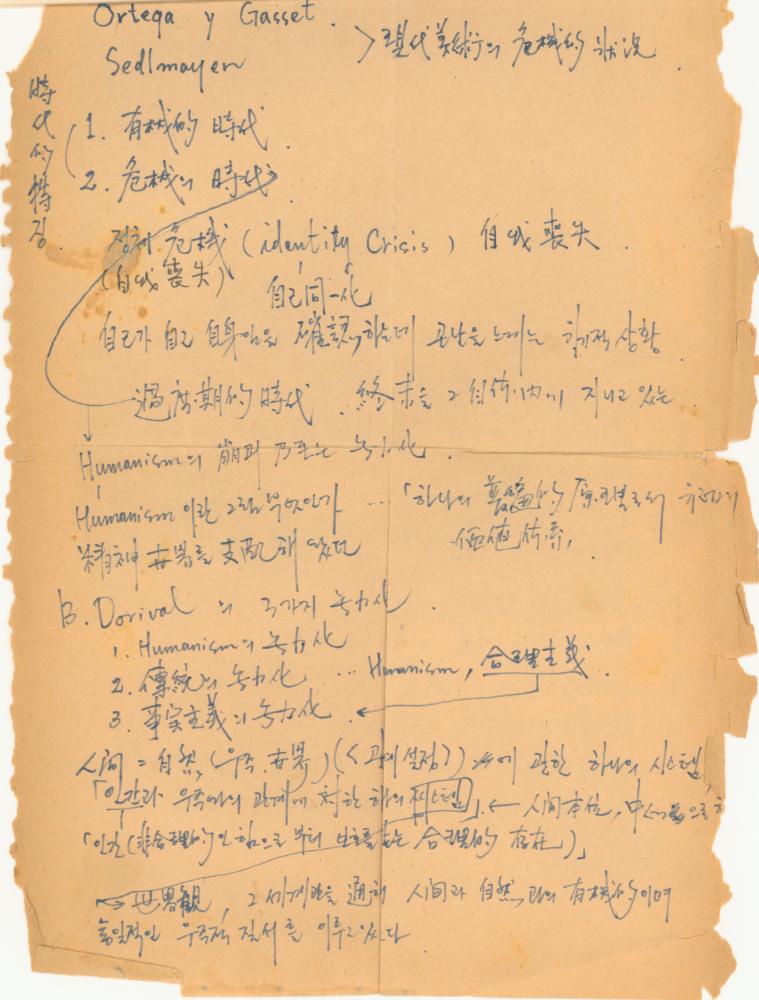 Ortega y Gasset.
Sedlmayer
> 現代美術의 危機的 狀況.
時代的 特징.
1. 有機的 時代.
2. 危機의 時代
정체危機 (identity Crisis) 自我喪失.
(自我喪失)
自己同一化
自己가 自己 自身임을 確認하는데 곤난을 느끼는 위기적 상황
過度期的 時代. 終末을 그 自体內에 지니고 있는
Humanism의 崩괴 乃至는 능力化.
Humanism 이란 그럼 무엇인가 ... 「하나의 普遍的 原理로서
価値体系,
精神 世界를 支配해 있던
B. Dorival 의 3가지 능力化.
1. Humanism의 능力化
2. 傳統의 능力化 ... Humanism, 合理主義.
3. 事実主義의 능力化.
人間 = 自然, (우주. 世界) (<관계 설정>) 관한 하나의 시스템,
「인간과 우주와의 관계에 対한 하나의 씨스템」. ← 人間本位, 中心
「인간 (非合理的인 힘으로 부터 보호 받는 合理的 存在)」
→ 世界観, 그 세계관을 通해 人間과 自然과의 有機的이며
통일적인 우주적 질서를 이루고 있다